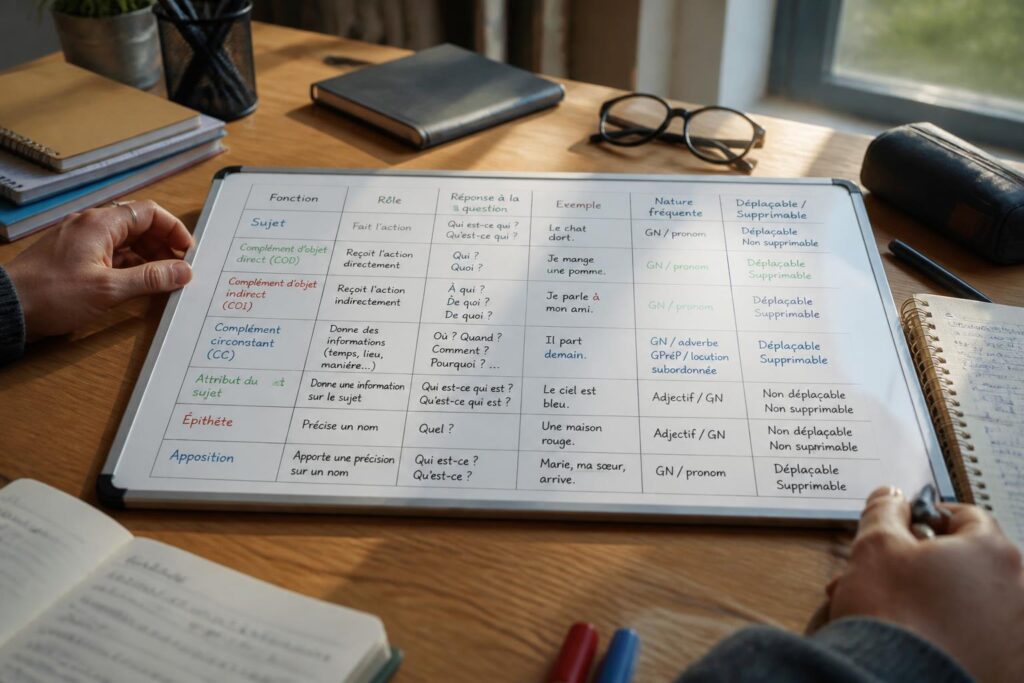 Fonction
Rôle
Réponse à la
question
Exemple
Nature
fréquente
Déplaçable /
Supprimable
Sujet
Fait l'action
Qui est-ce qui ?
Qu'est-ce qui ?
Le chat
dort.
GN / pronom
Déplaçable
Non supprimable
Complément d'objet
direct (COD)
Reçoit l'action
directement
Qui ?
Quoi ?
Je mange
une pomme.
GN / pronom
Déplaçable
Supprimable
Complément d'objet
indirect
(COI)
Reçoit l'action
indirectement
À qui ?
De quoi ?
De quoi ?
Je parle à
mon ami.
GN / pronom
Déplaçable
Supprimable
Complément
circonstant
(CC)
Donne des
informations
(temps, lieu,
maniére...)
Où ? Quand ?
Comment ?
Pourquoi ? ...
Il part
demain.
GN / adverbe
GPréP / locution
subordonnée
Déplaçable
Supprimable
Attribut du
sujet
Donne une information
sur le sujet
Qui est-ce qui est ?
Qu'est-ce qui est ?
Le ciel est
bleu.
Adjectif / GN
Non déplaçable
Non supprimable
Épithéte
Précise un nom
Quel ?
Une maison
rouge.
Adjectif / GN
Non déplaçable
Non supprimable
Apposition
Apporte une précision
sur un nom
Qui est-ce ?
Qu'est-ce ?
Marie, ma sœur,
arrive.
GN / pronom
Déplaçable
Supprimable